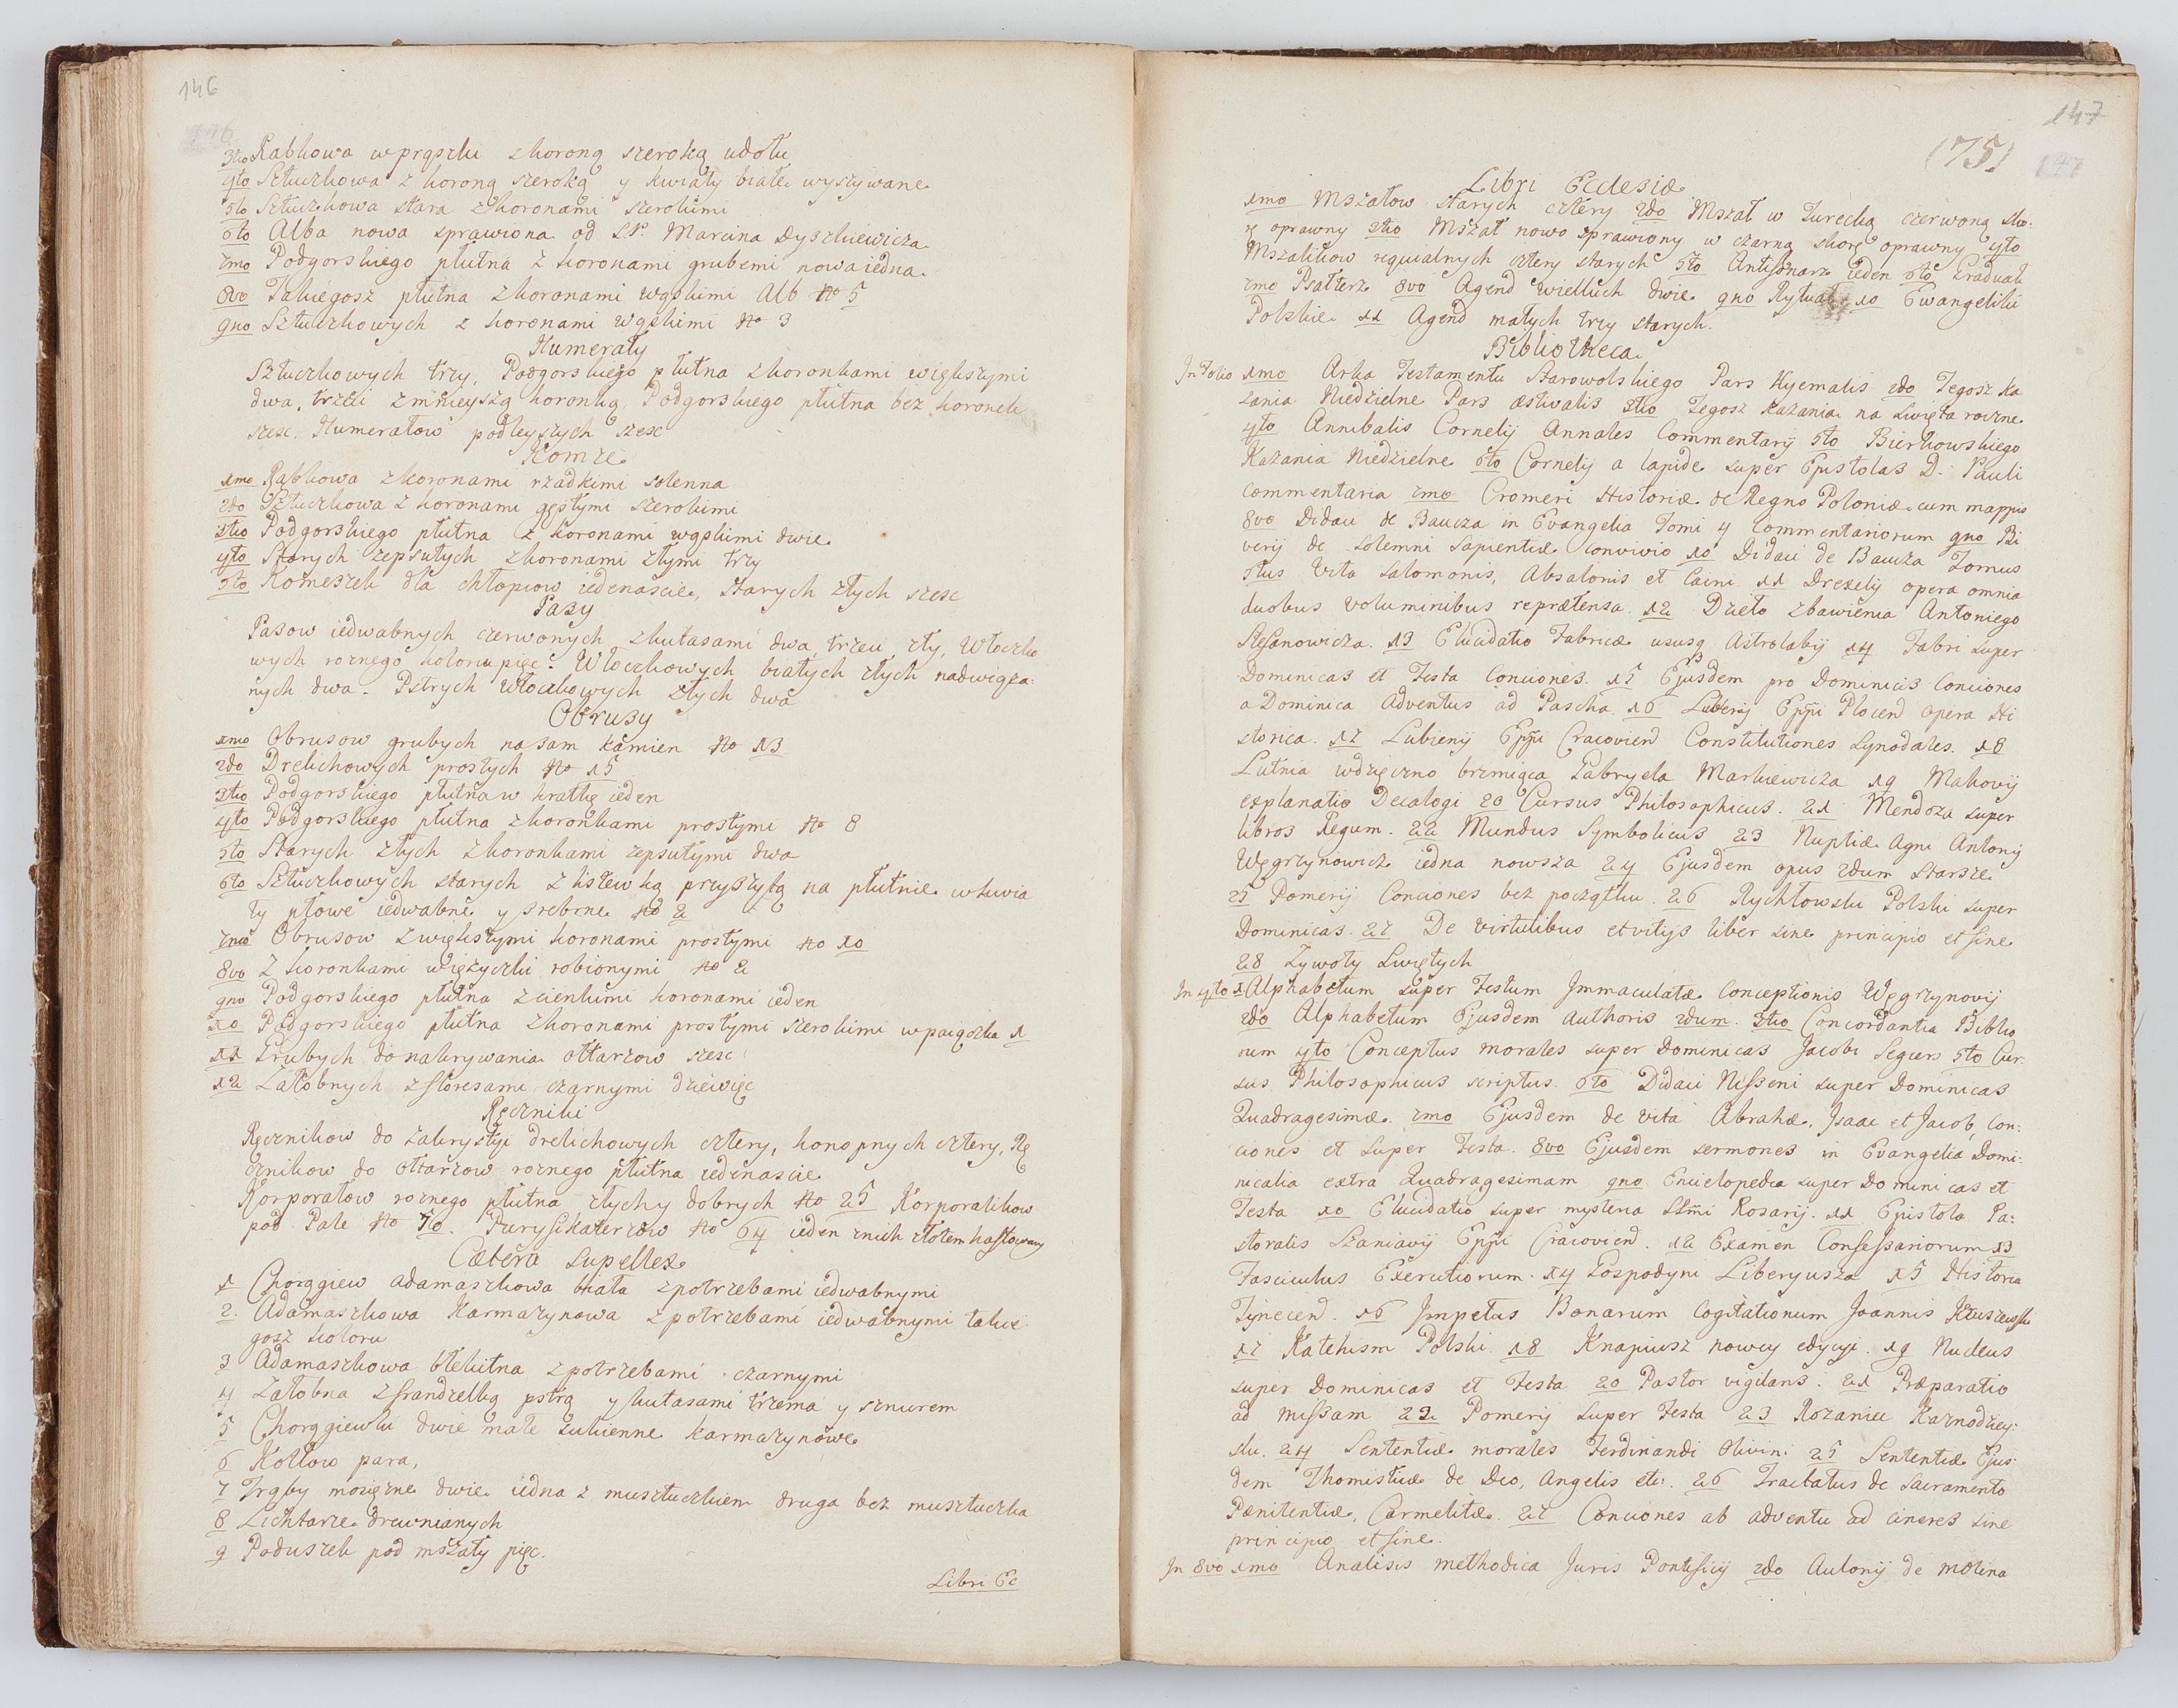 146
3tio Rąbkowa w prązku z koroną szeroką u dołu
4to Sztuczkowa z koroną szeroką y kwiaty białe wyszywane
5to Sztuczkowa stara z koronami szerokimi
6to Alba nowa sprawiona od Sł. Marcina Dyszkiewicza
7mo Podgorskiego płutna z koronami grubemi nowa iedna
8vo Takiegosz płutna z koronami wąskimi Alb No 5
9no Sztuczkowych z koronami wąskimi No 3
Humerały
Sztuczkowych trzy, Podgorskiego płutna z koronkami większymi
dwa, trzeci z mnieyszą koronką, Podgorskiego płutna bez koronek
szesc, Humerałow podleyszych szesc
Komże
1mo Rąbkowa z koronami rzadkimi solenna
2do Sztuczkowa z koronami gęstymi szerokimi
3tio Podgorskiego płutna z koronami wąskimi dwie
4to Starych zepsutych z koronami złymi trzy
5to Komeszek dla chłopcow iedenascie, starych złych szesc
Pasy
Pasow iedwabnych czerwonych z kutasami dwa, trzeci zły, Włoczko
wych roznego koloru pięc. Włoczkowych białych złych nadwięza:
nych dwa. Pstrych Włoczkowych złych dwa
Obrusy
1mo Obrusow grubych na sam kamien No 13
2do Drelichowych prostych No 15
3tio Podgorskiego płutna w kratkę ieden
4to Podgorskiego płutna z koronkami prostymi No 8
5to Starych złych z koronkami zepsutymi dwa
6to Sztuczkowych starych z listewką przyszytą na płutnie w kwia
ty płowe iedwabne y srebrne No 2
7mo Obrusow z większymi koronami prostymi No 10
8vo Z koronkami w ięzyczki robionymi No 2
9no Podgorskiego płutna z cienkimi koronami ieden
10 Podgorskiego płutna z koronami prostymi szerokimi w paiączka 1
11 Grubych do nakrywania ołtarzow szesc
12 Załobnych z floresami czarnymi dziewięc
Ręczniki
Ręcznikow do zakrystyi drelichowych cztery, konopnych cztery, Rę
cznikow do ołtarzow roznego płutna iedenascie
Korporałow roznego płutna złych y dobrych No 25 Korporalikow
pod Pale No 70. Puryfikaterzow No 64 ieden z nich złotem haftowany
Cætera Supellex
1 Chorągiew adamaszkowa biała z potrzebami iedwabnymi
2. Adamaszkowa Karmazynowa z potrzebami iedwabnymi takie
gosz koloru
3 Adamaszkowa błekitna z potrzebami czarnymi
4 Załobna z frandzelką pstrą y kutasami trzema y sznurem
5 Chorągiewki dwie małe sukienne karmazynowe
6 Kotłow para,
7 Trąby mosięzne dwie iedna z musztuczkiem druga bez musztuczka
8 Lichtarze drewnianych
9 Poduszek pod mszały pięc.
Libri Ec
147
(75)
Libri Ecclesiæ
1mo Mszałow starych cztery 2do Mszał w Turecką czerwoną sko:
rę oprawny 3tio Mszał nowo sprawiony w czarną skorę oprawny 4to
Mszalikow requialnych cztery starych 5to Antifonarz ieden 6to Graduał
7mo Psałterz 8vo Agend wielkich dwie 9no Rytuał 10 Ewangeliki
Polskie 11 Agend małych trzy starych.
Bibliotheca
In Folio 1mo Arka Testamentu Starowolskiego Pars Hyemalis 2do Tegosz Ka
zania Niedzielne Pars æstivalis 3tio Tegosz Kazania na Swięta roczne
4to Annibalis Cornelij Annales Commentarij 5to Bierkowskiego
Kazania Niedzielne 6to Cornelij a lapide super Epistolas D. Pauli
Commentaria 7mo Cromeri Historiæ de Regno Poloniæ cum mappis
8vo Didaci de Baucza in Evangelia Tomi 4 Commentariorum 9no Bi
verij de solemni sapientiæ convivio 10 Didaci de Baucza Tomus
5tus Vita Salomonis, Absalonis et Caini 11 Drexelij opera omnia
duobus voluminibus reprætensa. 12 Dzieło zbawienia Antoniego
Stefanowicza. 13 Elucidatio Fabricæ ususq Astrolabij 14 Fabri super
Dominicas et Festa Conciones. 15 Ejusdem pro Dominicis Conciones
a Dominica Adventus ad Pascha. 16 Luberij Eppi Plocen opera Hi
storica. 17 Lubienij Eppi Cracovien Constitutiones Synodales. 18
Lutnia wdzięczno brzmiąca Gabryela Markiewicza 19 Makovij
explanatio Decalogi 20 Cursus Philosophicus. 21 Mendoza super
libros Regum. 22 Mundus Symbolicus 23 Nuptiæ Agni Antonij
Węgrzynowicz iedna nowsza 24 Ejusdem opus 2dum starsze
25 Pomerij Conciones bez początku. 26 Rychłowski Polski super
Dominicas. 27 De virtutibus et vitijs liber sine principio et fine
28 Zywoty Swiętych
In 4to 1 Alphabetum super Festum Immaculatæ Conceptionis Węgrzynovij
2do Alphabetum Ejusdem Authoris 2dum. 3tio Concordantia Biblio
rum 4to Conceptus morales super Dominicas Jacobi Segers 5to Cur
sus Philosophicus scriptus. 6to Didaci Nisseni super Dominicas
Quadragesimæ. 7mo Ejusdem de vita Abrahæ, Isaac et Jacob, Con:
ciones et super Festa. 8vo Ejusdem sermones in Evangelia Domi:
nicalia extra Quadragesimam 9no Enciclopedia super Dominicas et
Festa 10 Elucidatio super mysteria SSmi Rosarij. 11 Epistola Pa:
storalis Szaniavij Eppi Cracovien. 12 Examen Confessariorum 13
Fasciculus Exercitiorum. 14 Gospodyni Liberyusza 15 Historia
Tynecen. 16 Impetus Bonarum Cogitationum Joannis
17 Katehism Polski. 18 Knapiusz nowey edycyi. 19 Nucleus
super Dominicas et Festa 20 Pastor vigilans. 21 Præparatio
ad missam 22 Pomerij super Festa 23 Rozaniec Kaznodziey:
ski. 24 Sententiæ morales Ferdinandi Olivini 25 Sententiæ Ejus:
dem Thomisticæ de Deo, Angelis etc: 26 Tractatus de Sacramento
Pænitentiæ, Carmelitæ. 27 Conciones ab adventu ad cineres sine
principio et fine.
In 8vo 1mo Analisis methodica Juris Pontificij 2do Antonij de Molina